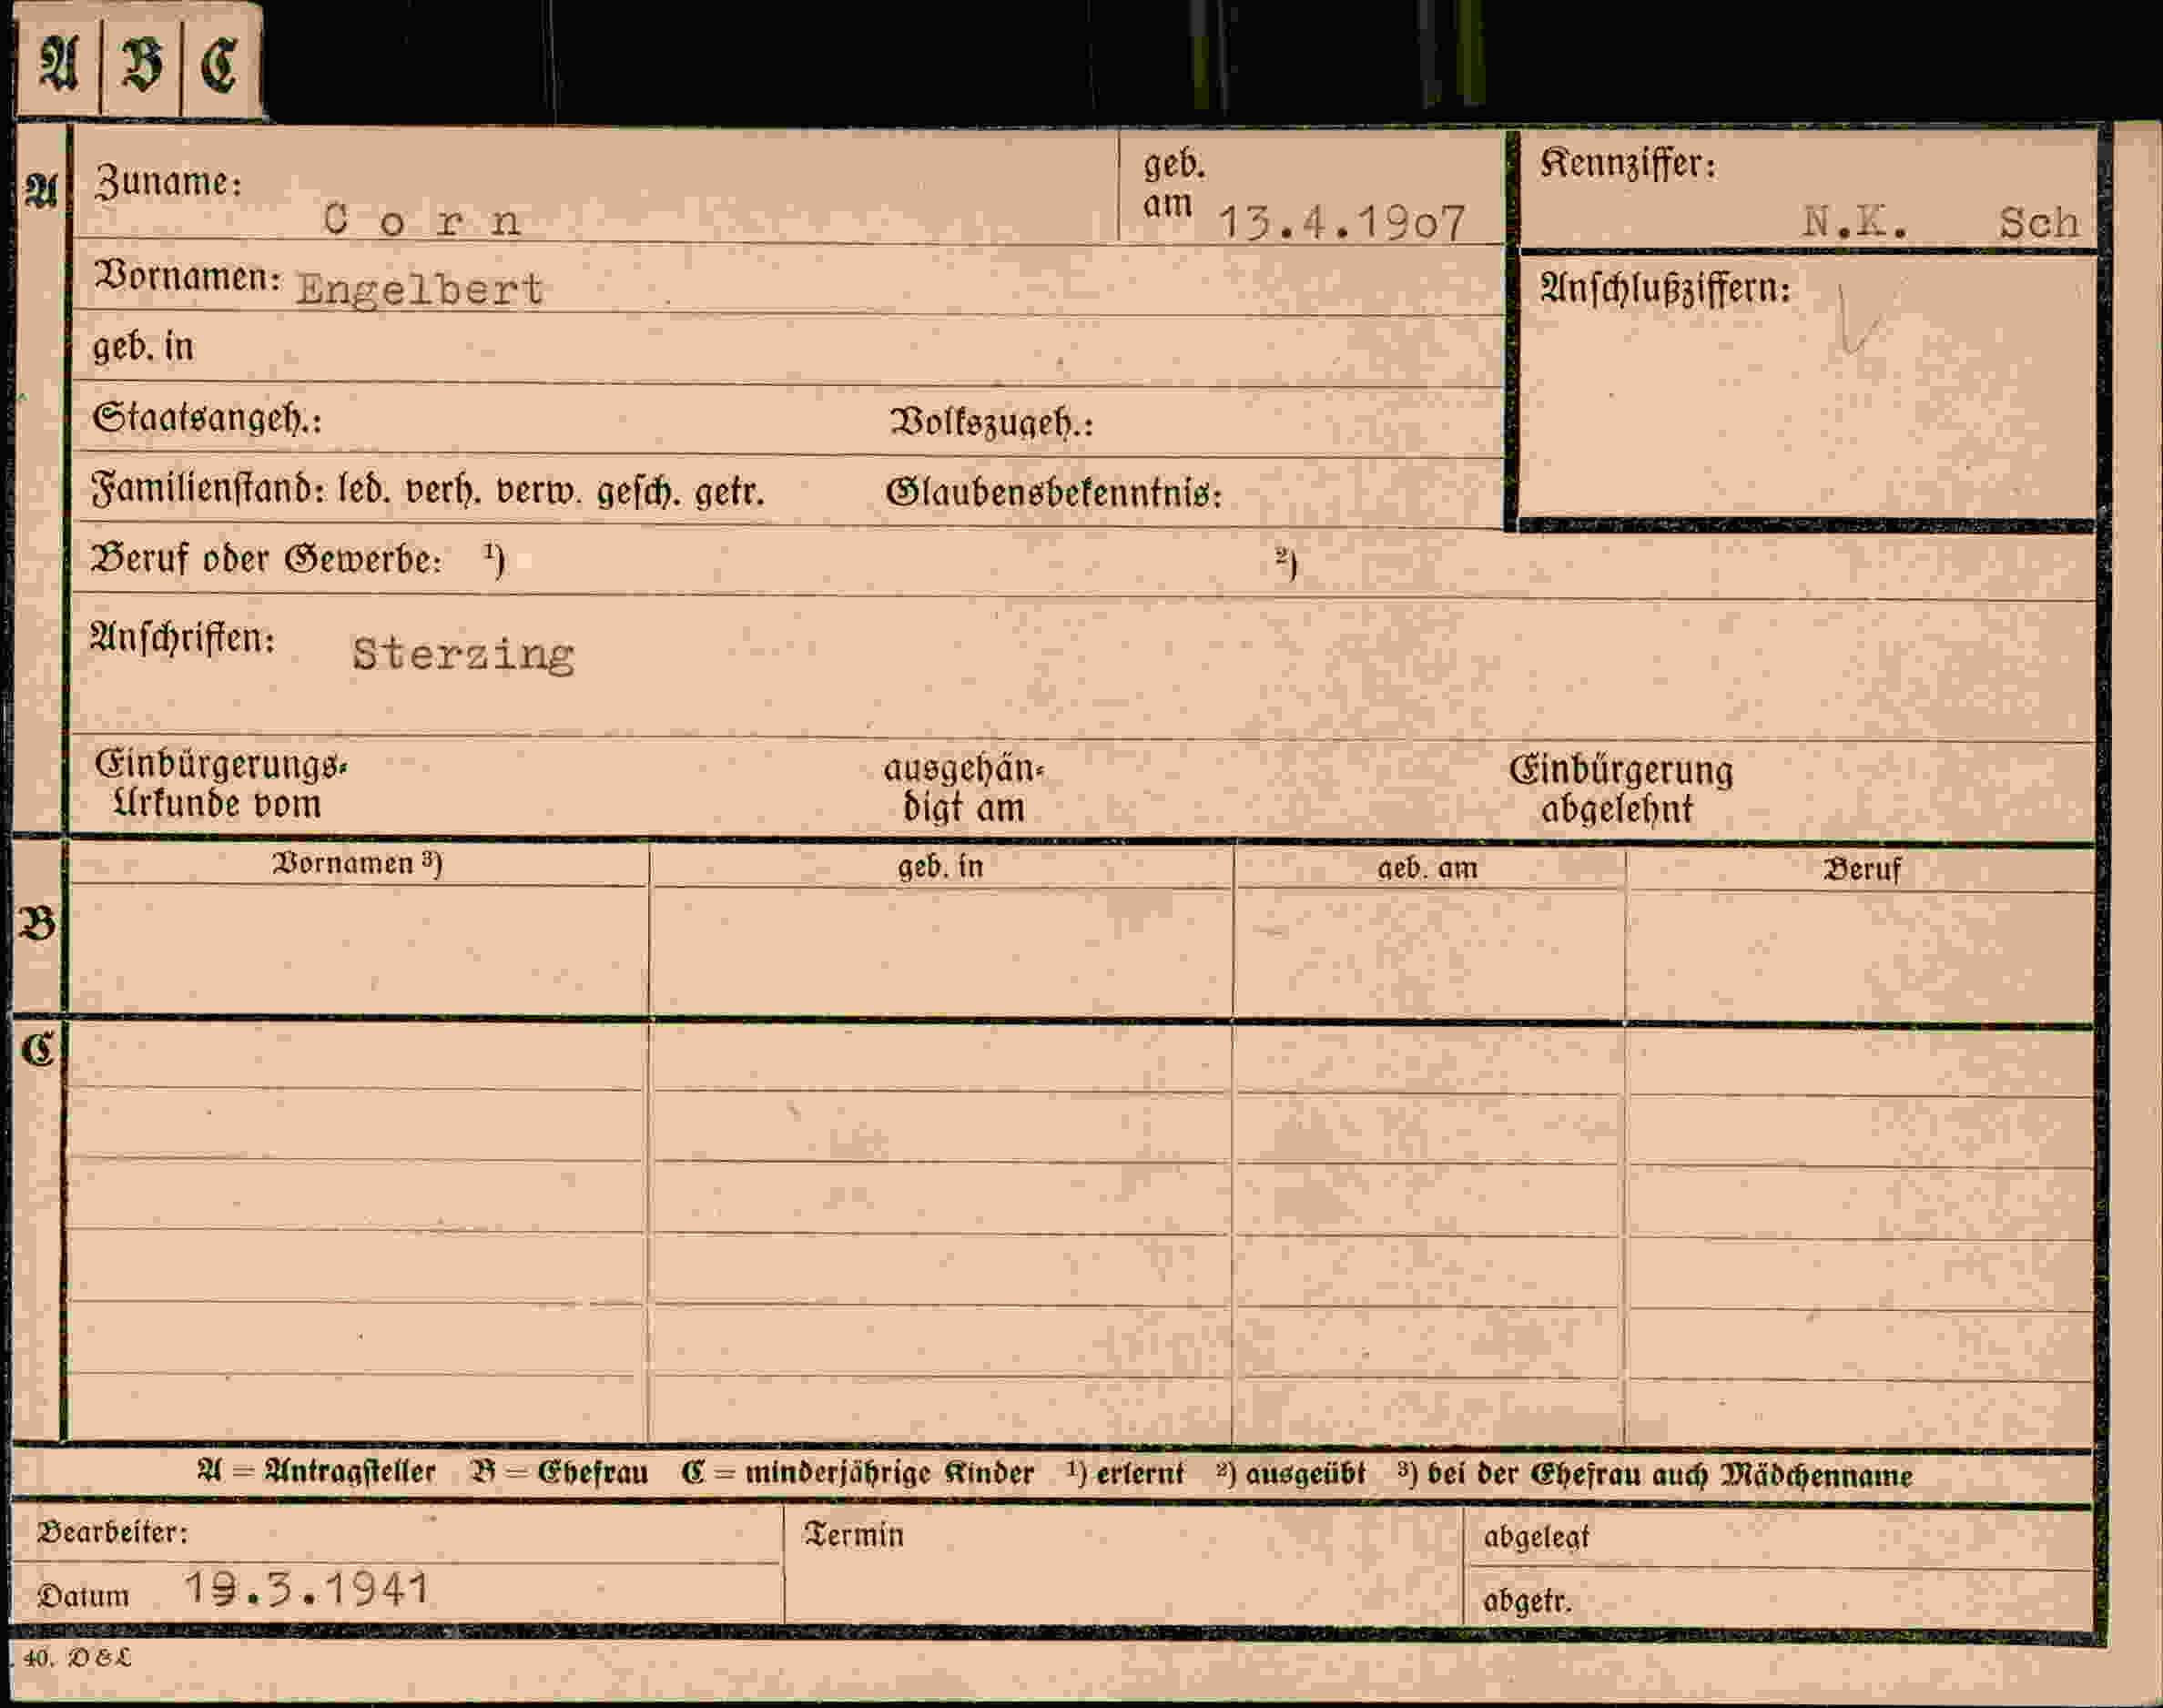 A B C
A Zuname: C o r n geb. am 13.4.19o7 Kennziffer: N.K. Sch
Vornamen: Engelbert Anschlußziffern:
geb. in
Staatsangeh.: Volkszugeh.:
Familienstand: led. verh. verw. gesch. getr. Glaubensbekenntnis:
Beruf oder Gewerbe: ¹) ²)
Anschriften: Sterzing
Einbürgerungs- ausgehän- Einbürgerung
Urkunde vom digt am abgelehnt
Vornamen ³) geb. in geb. am Beruf
B
C
A = Antragsteller B = Ehefrau C = minderjährige Kinder ¹) erlernt ²) ausgeübt ³) bei der Ehefrau auch Mädchenname
Bearbeiter: Termin abgelegt
Datum 19.3.1941 abgetr.
40. D & L